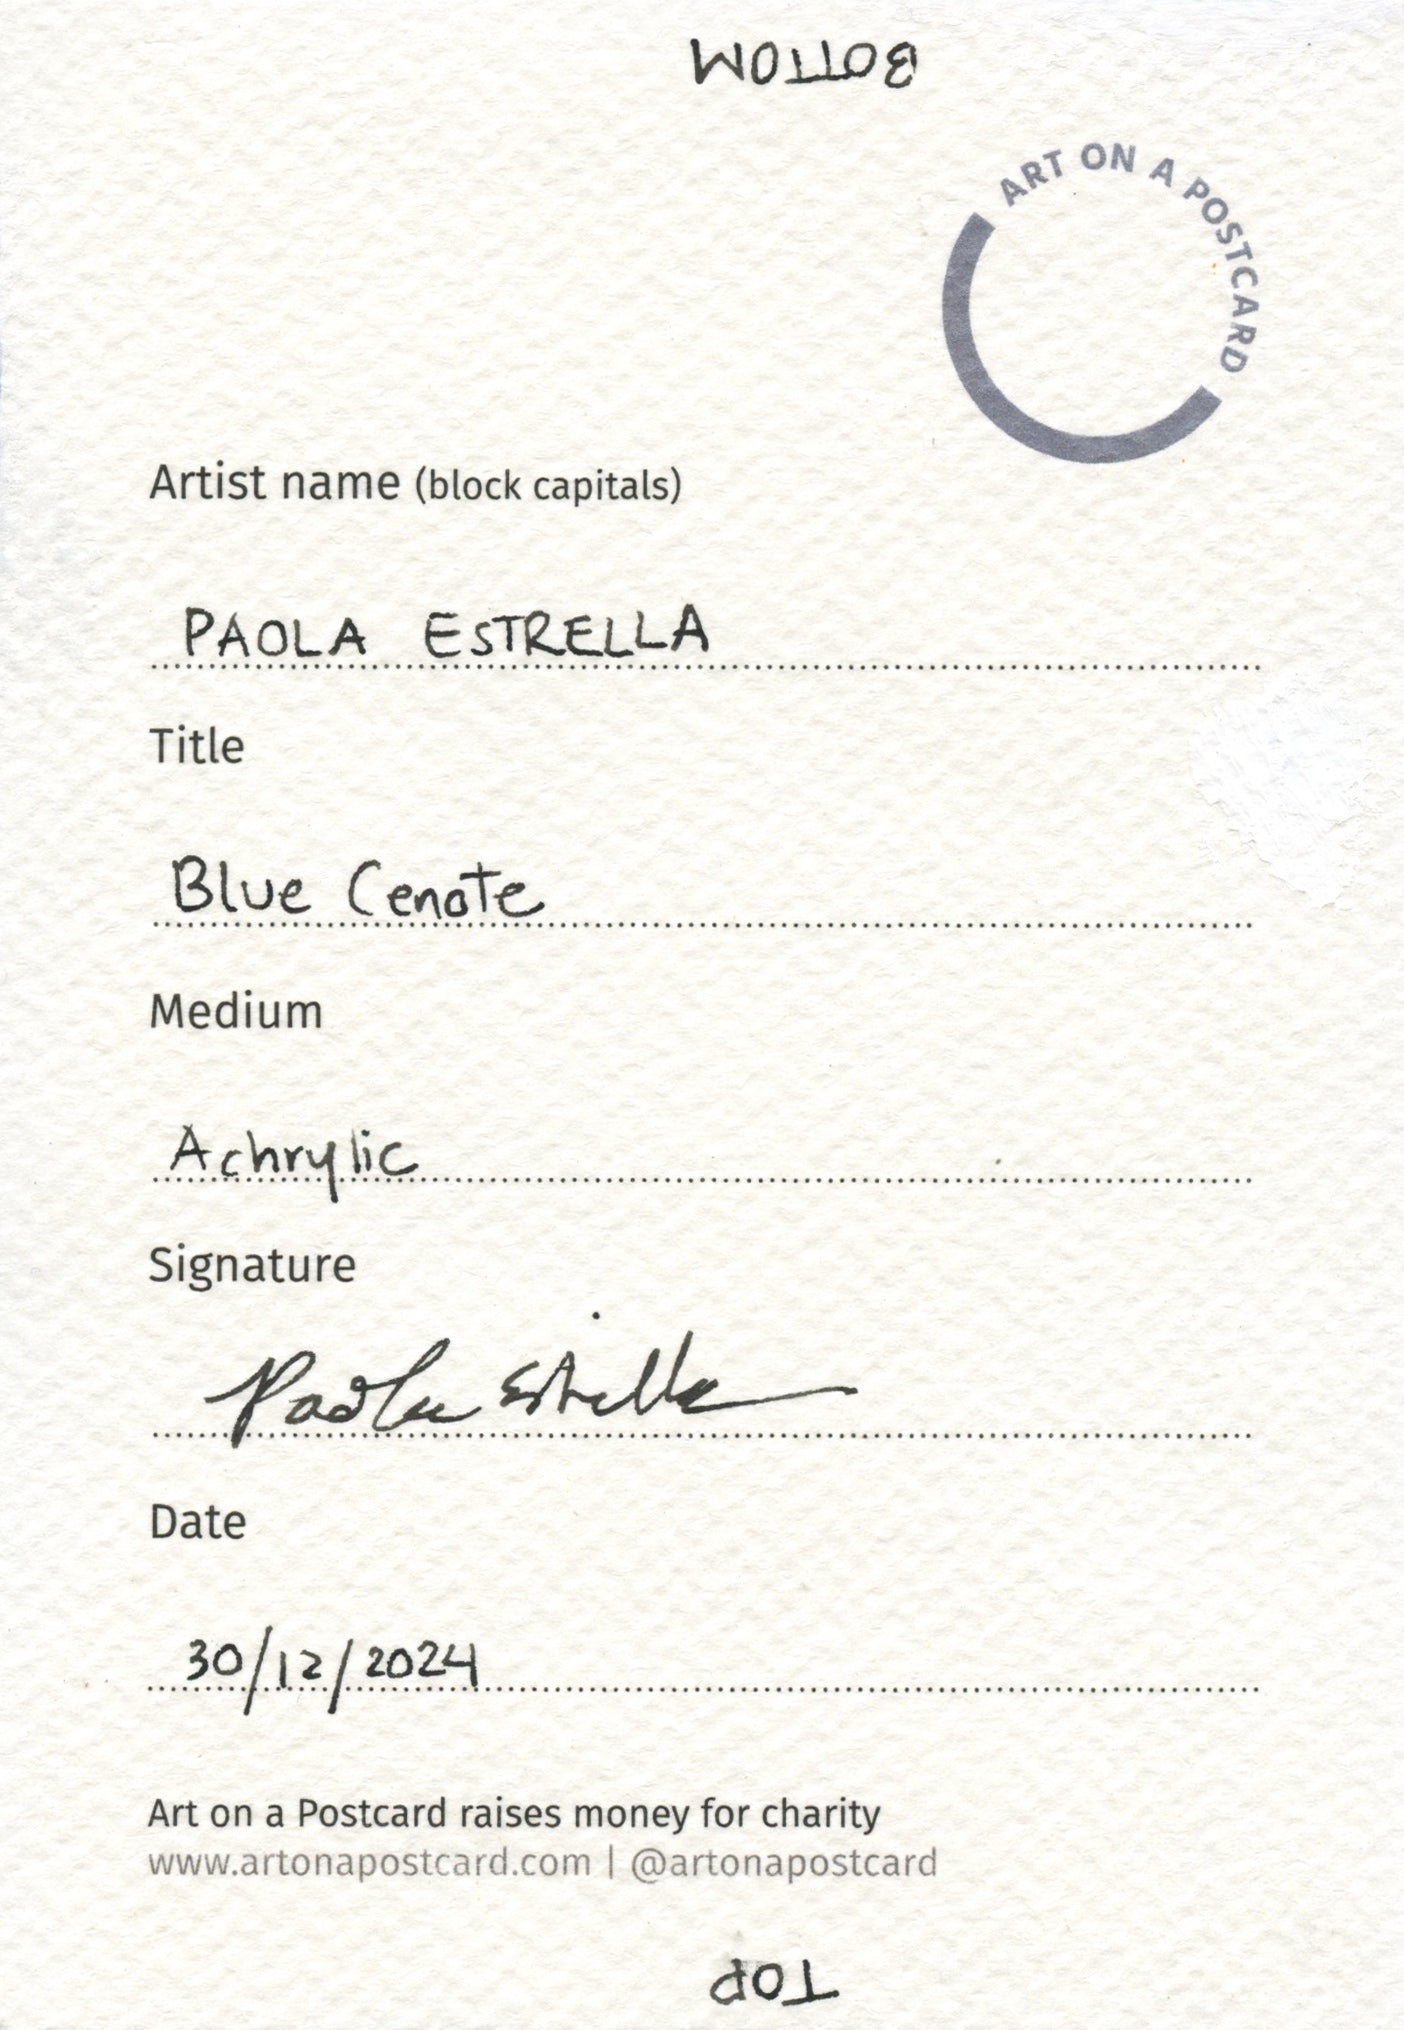 BOTTOM
ART ON A POSTCARD
Artist name (block capitals)
PAOLA ESTRELLA
Title
Blue Cenote
Medium
Achrylic
Signature
Paola Estrella
Date
30/12/2024
Art on a Postcard raises money for charity
www.artonapostcard.com | @artonapostcard
TOP